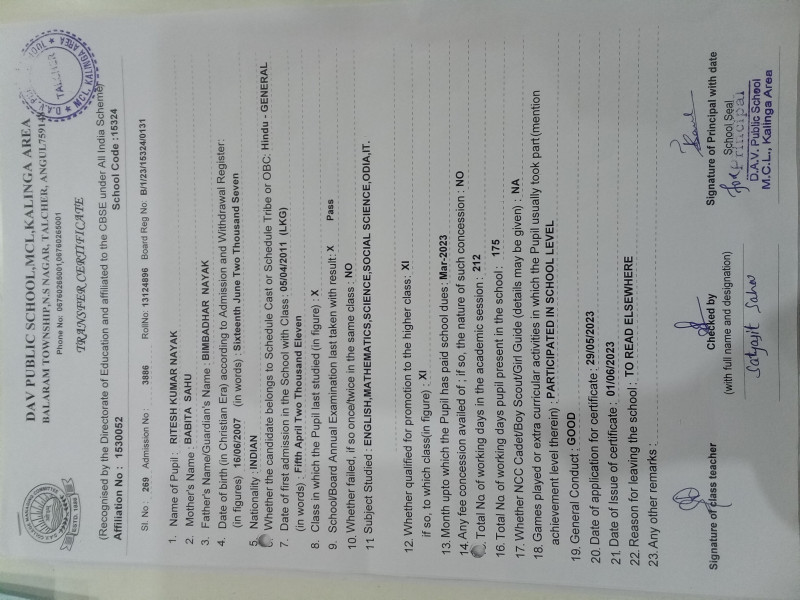 DAV PUBLIC SCHOOL,MCL,KALINGA AREA
BALARAM TOWNSHIP,N.S NAGAR, TALCHER, ANGUL759148
Phone No: 06760265001,06760265001
TRANSFER CERTIFICATE
(Recognised by the Directorate of Education and affiliated to the CBSE under All India Scheme)
Affiliation No : 1530052 School Code :15324
Sl. No : 269 Admission No : 3886 RollNo: 13124896 Board Reg No: B/1/23/15324/0131
1. Name of Pupil : RITESH KUMAR NAYAK
2. Mother's Name : BABITA SAHU
3. Father's Name/Guardian's Name : BIMBADHAR NAYAK
4. Date of birth (in Christian Era) according to Admission and Withdrawal Register:
(in figures) 16/06/2007 (in words) : Sixteenth June Two Thousand Seven
5. Nationality : INDIAN
6. Whether the candidate belongs to Schedule Cast or Schedule Tribe or OBC: Hindu - GENERAL
7. Date of first admission in the School with Class : 05/04/2011 (LKG)
(in words) : Fifth April Two Thousand Eleven
8. Class in which the Pupil last studied (in figure) : X
9. School/Board Annual Examination last taken with result: X Pass
10. Whether failed, if so once/twice in the same class : NO
11 Subject Studied : ENGLISH,MATHEMATICS,SCIENCE,SOCIAL SCIENCE,ODIA,IT.
12. Whether qualified for promotion to the higher class: XI
if so, to which class(in figure) : XI
13. Month upto which the Pupil has paid school dues : Mar-2023
14. Any fee concession availed of ; if so, the nature of such concession : NO
Total No. of working days in the academic session : 212
16. Total No. of working days pupil present in the school : 175
17. Whether NCC Cadet/Boy Scout/Girl Guide (details may be given) : NA
18. Games played or extra curricular activities in which the Pupil usually took part(mention
achievement level therein) : PARTICIPATED IN SCHOOL LEVEL
19. General Conduct : GOOD
20. Date of application for certificate : 29/05/2023
21. Date of Issue of certificate : 01/06/2023
22. Reason for leaving the school : TO READ ELSEWHERE
23. Any other remarks :
Signature of class teacher
Checked by
(with full name and designation)
Satyajit Sahoo
Signature of Principal with date
School Seal
for Principal
D.A.V. Public School
M.C.L., Kalinga Area
TALCHER
MCL, KALINGA AREA